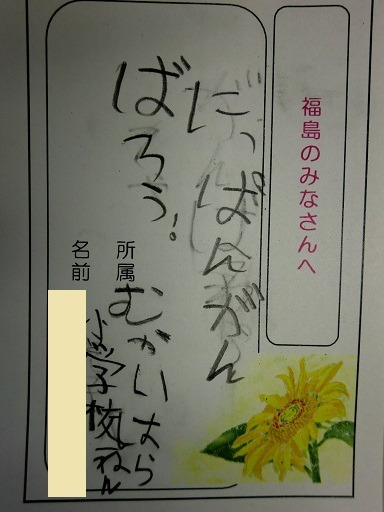 福島のみなさんへ
にっぽんがん
ばろう!
所属 むかいはら
小学校一ねん
名前